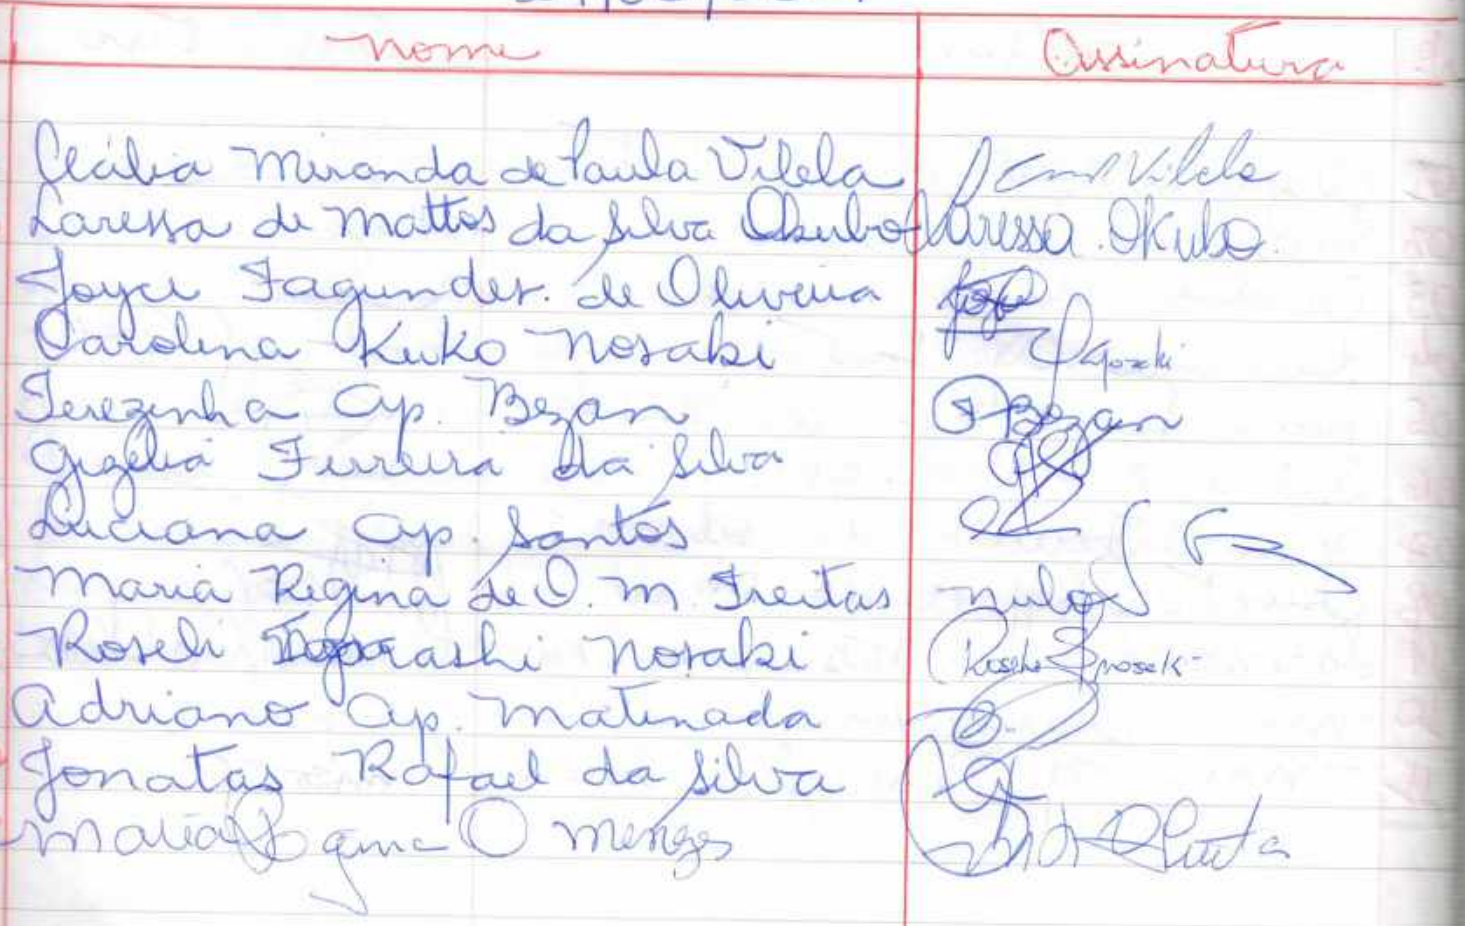 Nome Assinatura
Clélia Miranda de Paula Vilela Vilela
Laressa de Mattos da Silva Okubo Laressa Okubo
Joyce Fagundes de Oliveira
Carolina Kuko Nosaki
Terezinha Ap. Bezan Bezan
Gizélia Ferreira da Silva
Luciana Ap. Santos
Maria Regina de O. M. Freitas nulo
Roseli Nosaki Roseli
Adriano Ap. Matinada
Jonatas Rafael da Silva
Maria Regina O Menezes